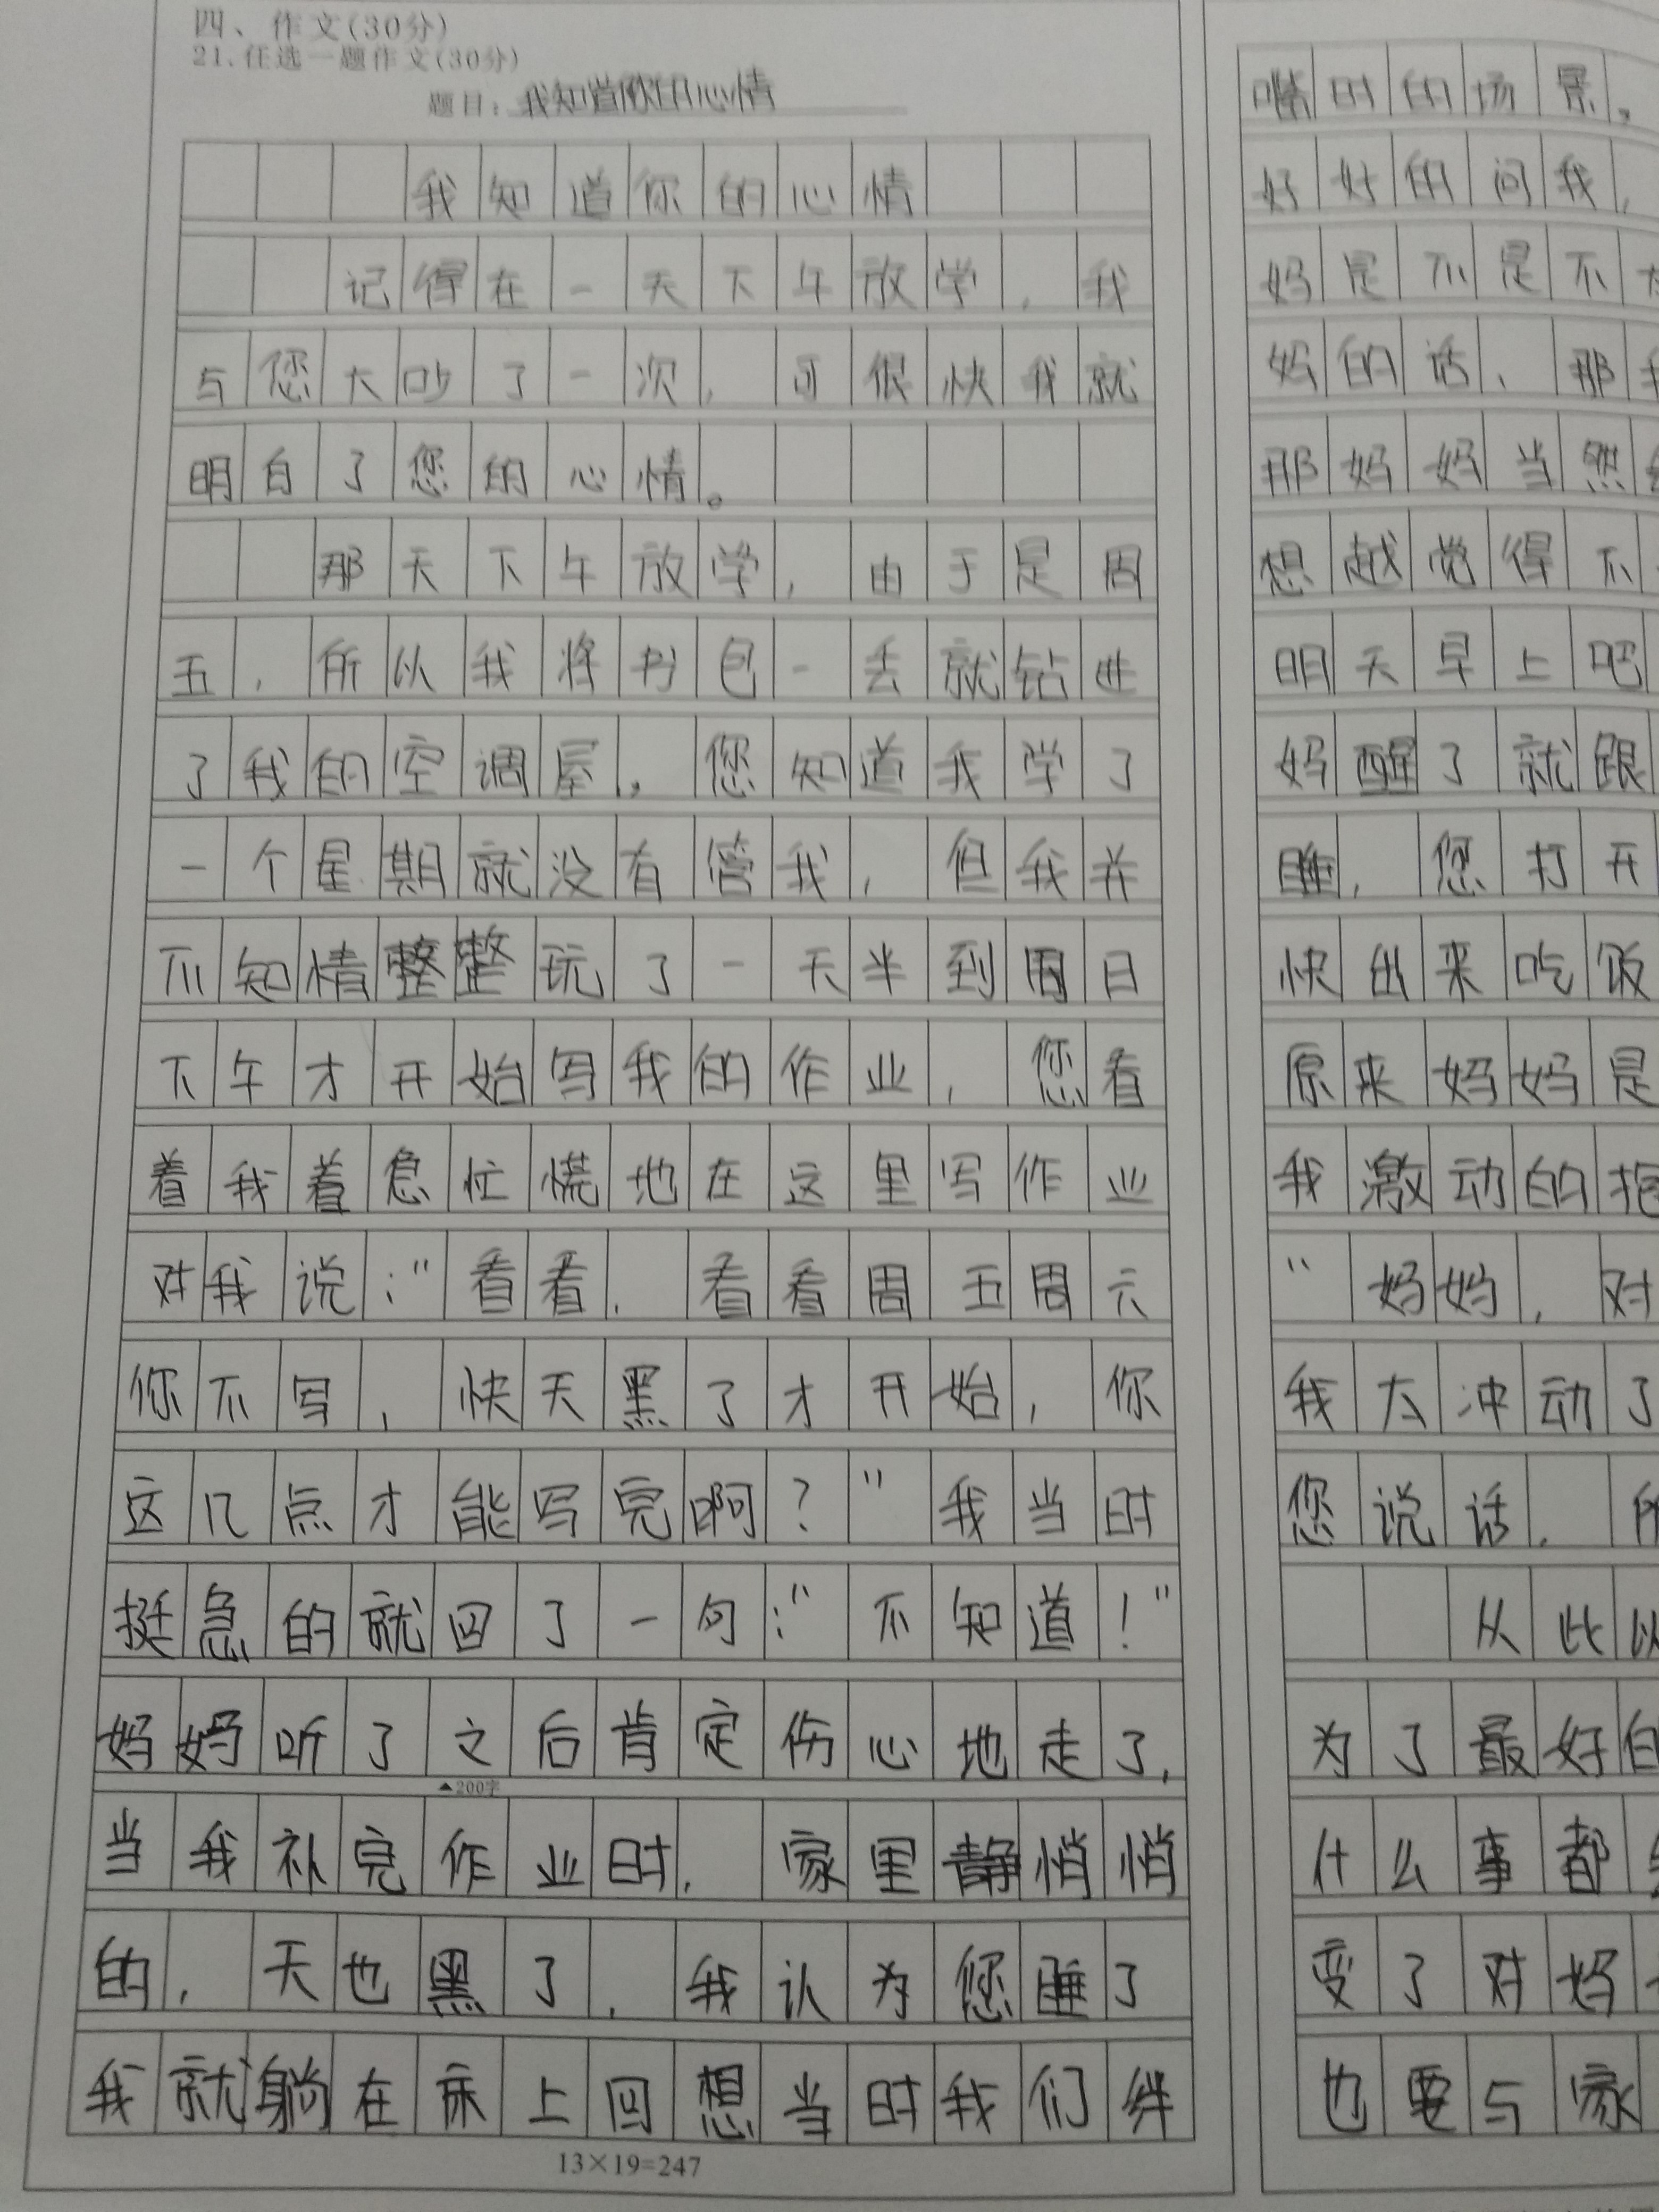 四、作文(30分)
21.任选一题作文(30分)
题目：我知道你的心情
我知道你的心情
记得在一天下午放学，我
与您大吵了一次，可很快我就
明白了您的心情。
那天下午放学，由于是周
五，所以我将书包一丢就钻进
了我的空调屋。您知道我学了
一个星期就没有管我，但我并
不知情整整玩了一天半到周日
下午才开始写我的作业，您看
着我着急忙慌地在这里写作业
对我说："看看，看看周五周六
你不写，快天黑了才开始，你
这几点才能写完啊？"我当时
挺急的就回了一句："不知道！"
妈妈听了之后肯定伤心地走了，
▲200字
当我补完作业时，家里静悄悄
的，天也黑了，我认为您睡了
我就躺在床上回想当时我们绊
13×19=247
嘴时的场景。
好好的问我，
妈是不是不
妈的话，那
那妈妈当然
想越觉得不
明天早上吧
妈醒了就跟
睡，您打开
快出来吃饭
原来妈妈是
我激动的抱
"妈妈，对
我太冲动了
您说话，所
从此以
为了最好的
什么事都
变了对妈
也要与家